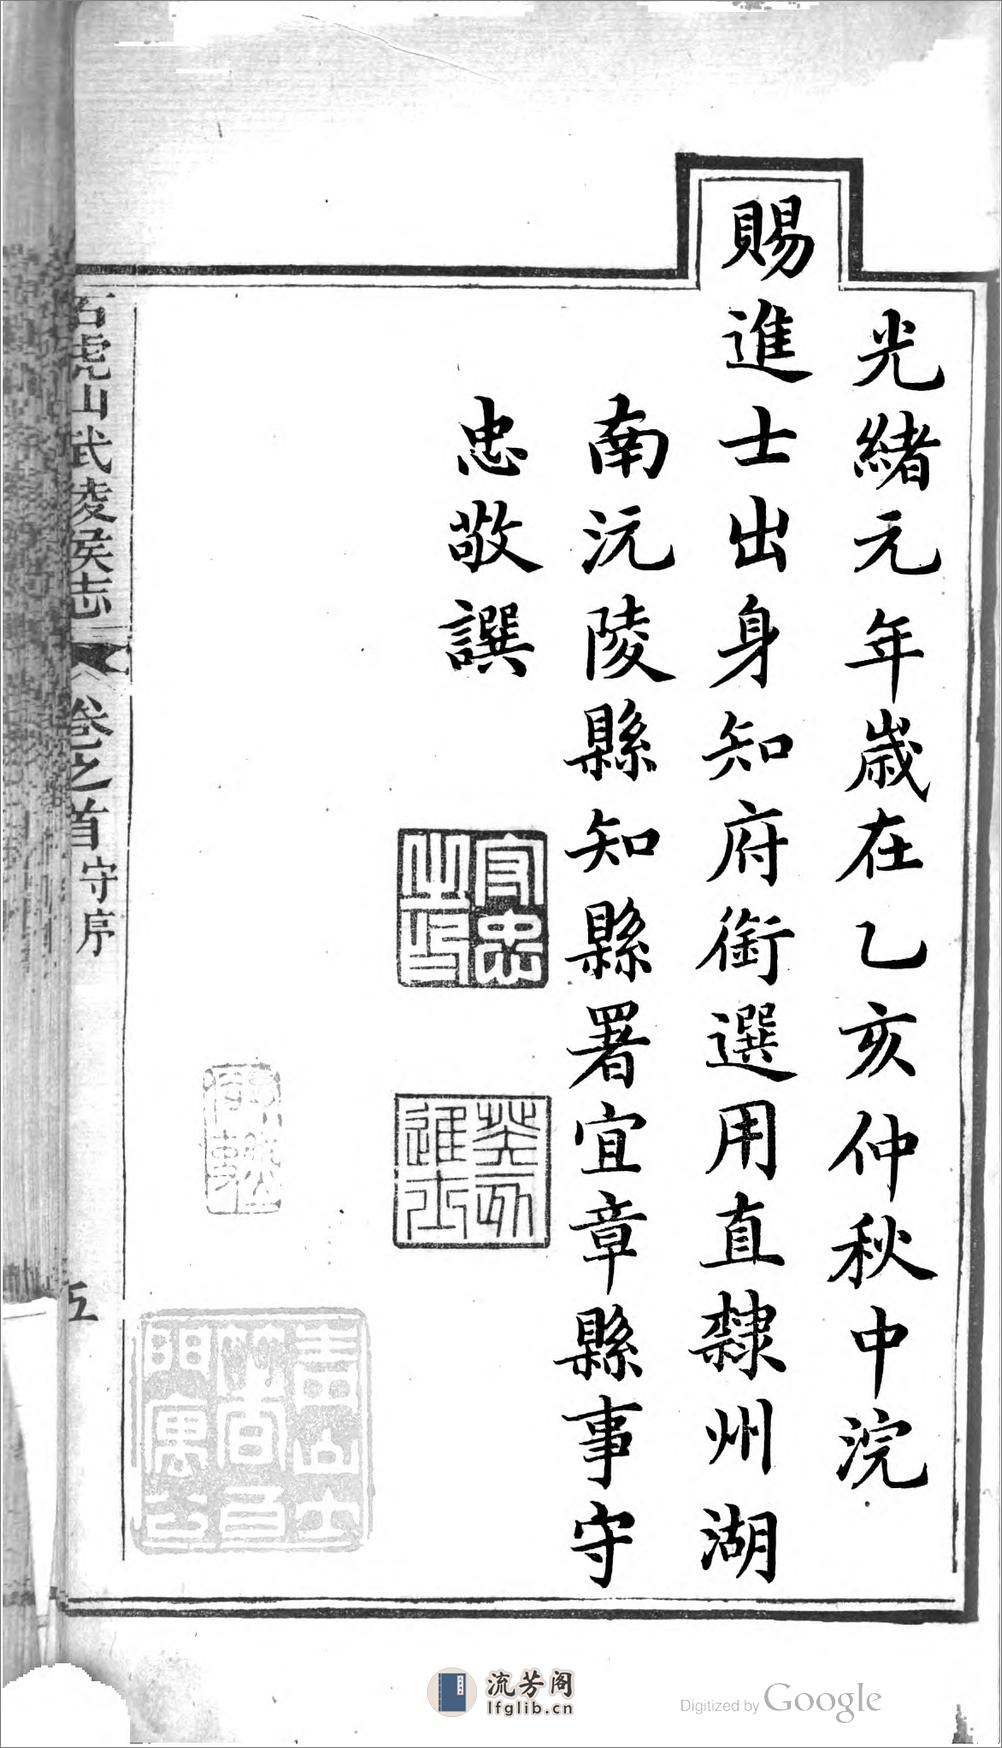 光緒元年歲在乙亥仲秋中浣
賜進士出身知府銜選用直隸州湖
南沅陵縣知縣署宜章縣事守
忠敬譔
守忠之印
癸丑進士
石虎山武陵侯志
卷之首
守序
五
流芳阁
lfglib.cn
Digitized by Google